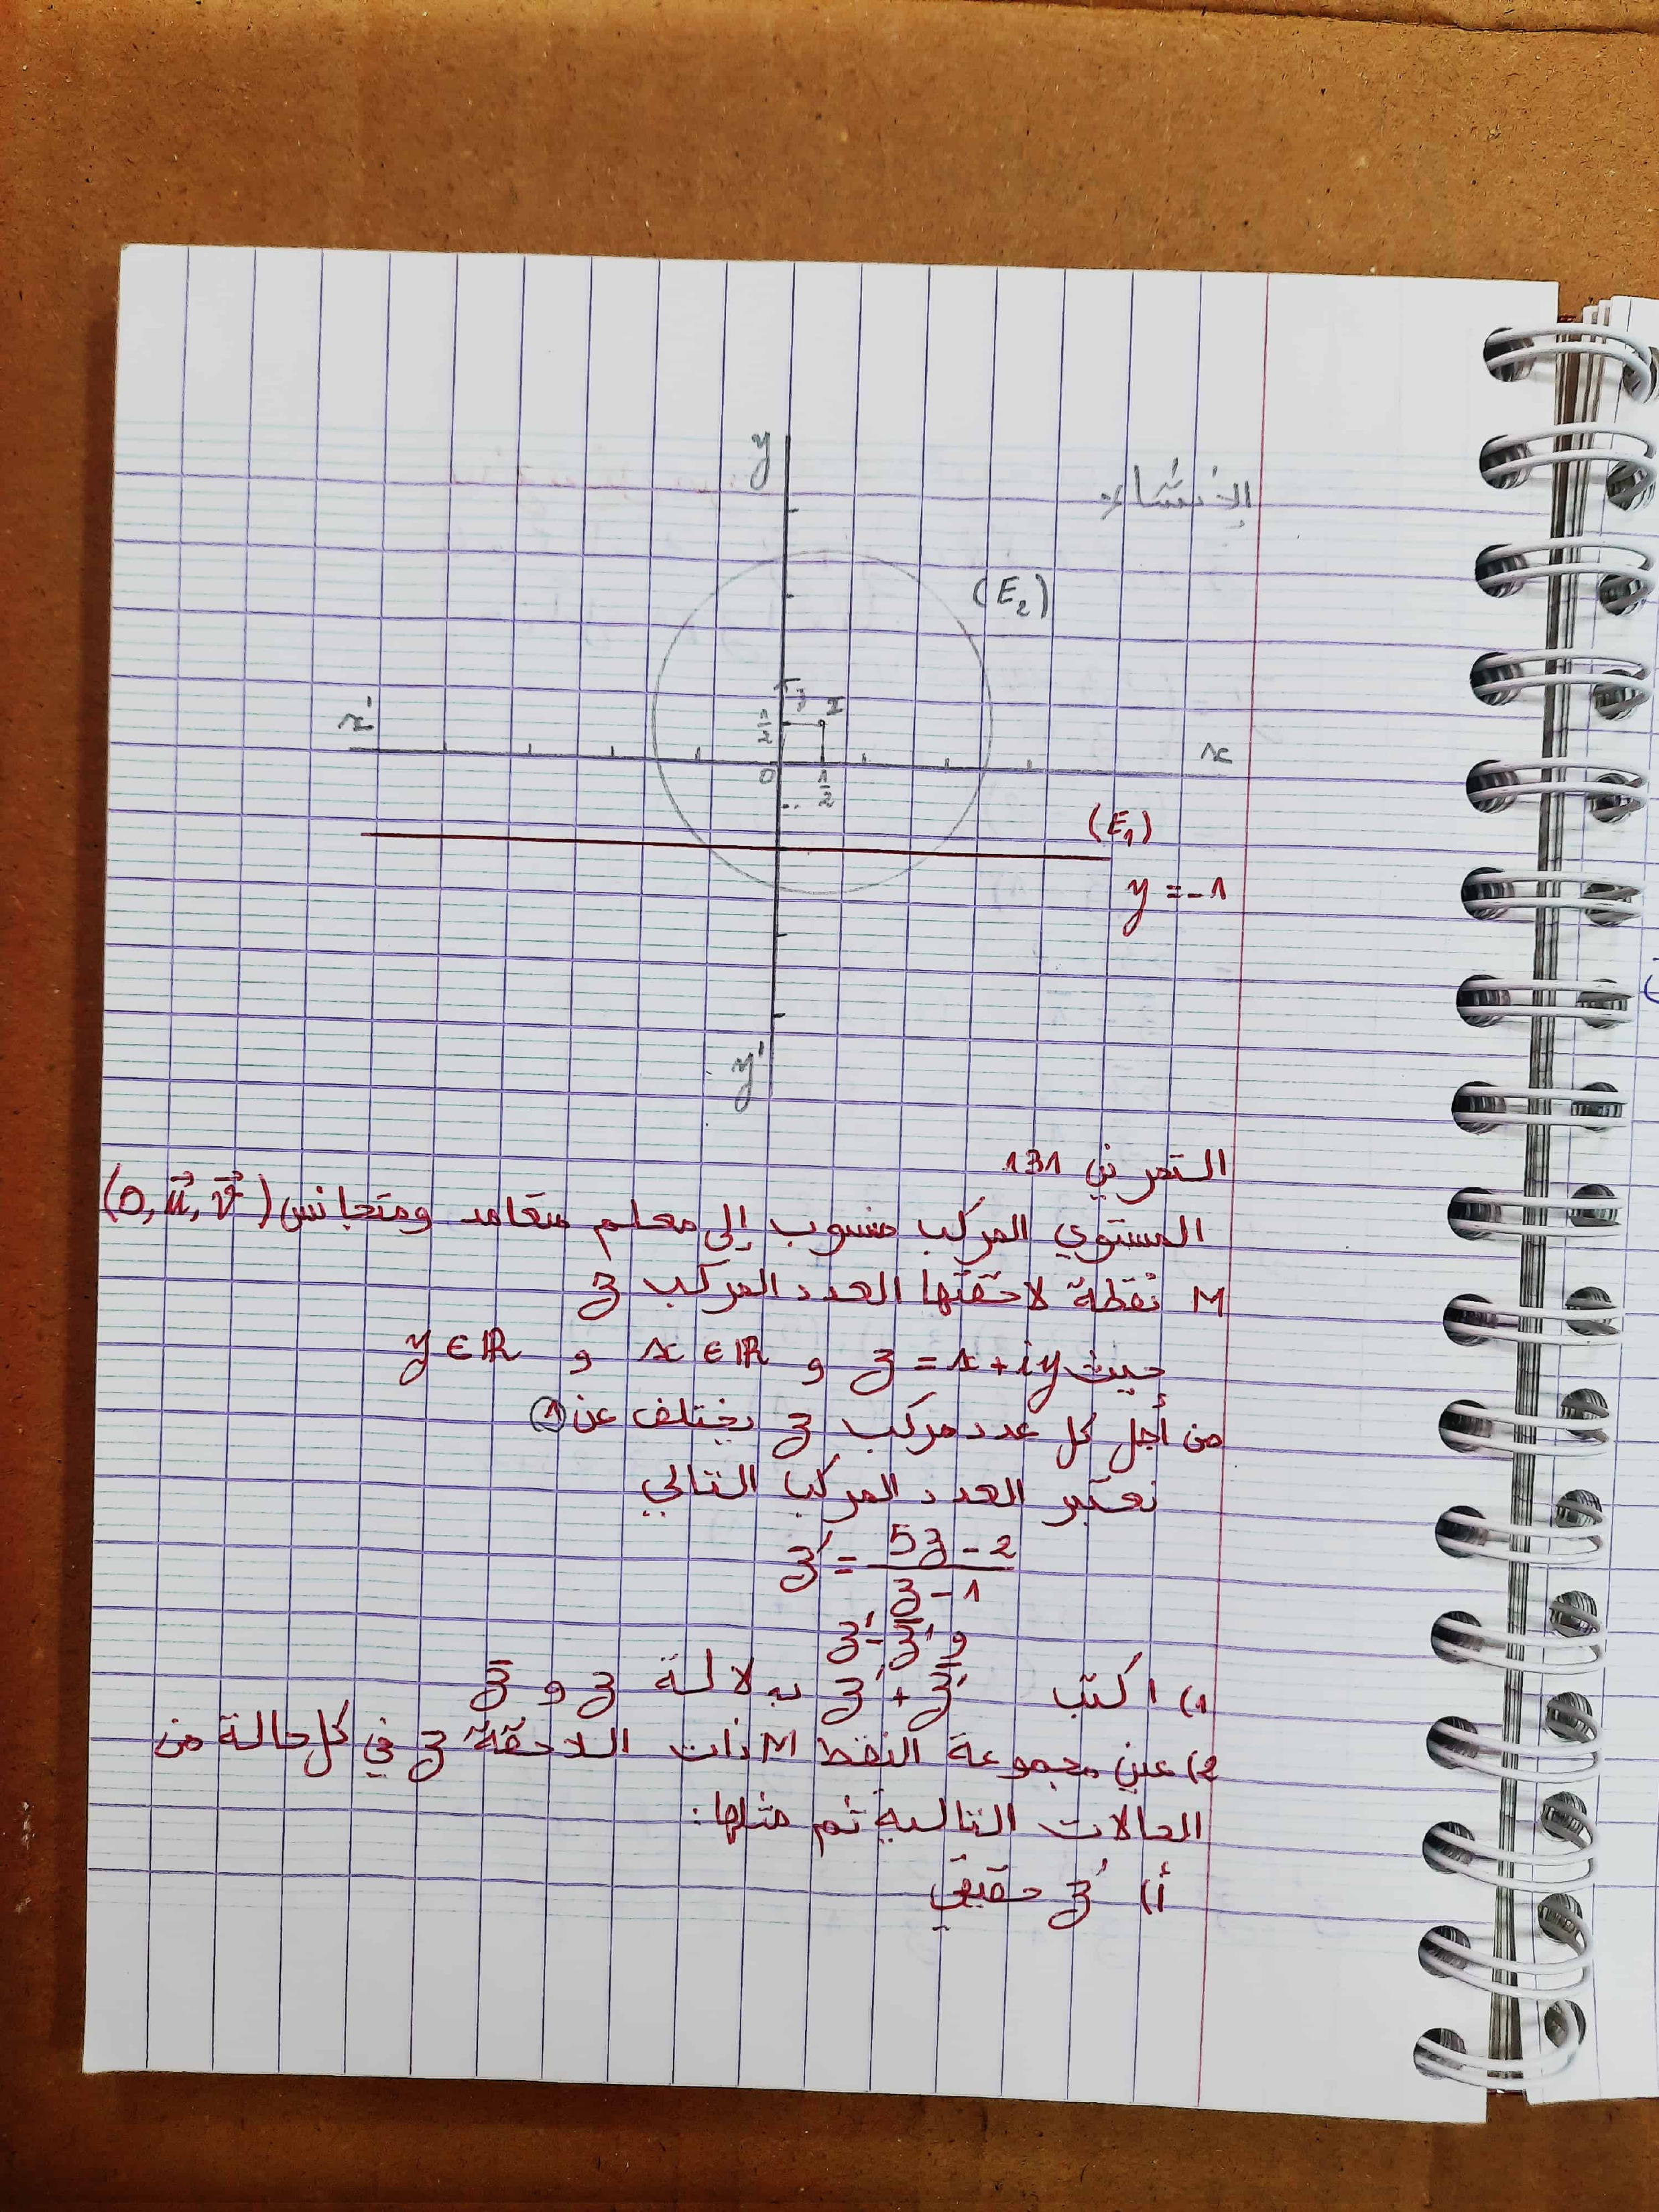 الإنشاء
y
(E₂)
1
I
1/2
x'
x
0
1/2
(E₁)
y = -1
y'
التمرين 131
المستوي المركب منسوب إلى معلم متعامد ومتجانس (O, u⃗, v⃗)
M نقطة لاحقتها العدد المركب z
حيث z = x + iy و x ∈ ℝ و y ∈ ℝ
من أجل كل عدد مركب z يختلف عن 1
نعتبر العدد المركب التالي
z' = (5z - 2)/(z - 1)
و z' - z̄'
1) اكتب z' + z̄' بدلالة z و z̄
2) عين مجموعة النقط M ذات اللاحقة z في كل حالة من
الحالات التالية ثم مثلها:
أ) z' حقيقي